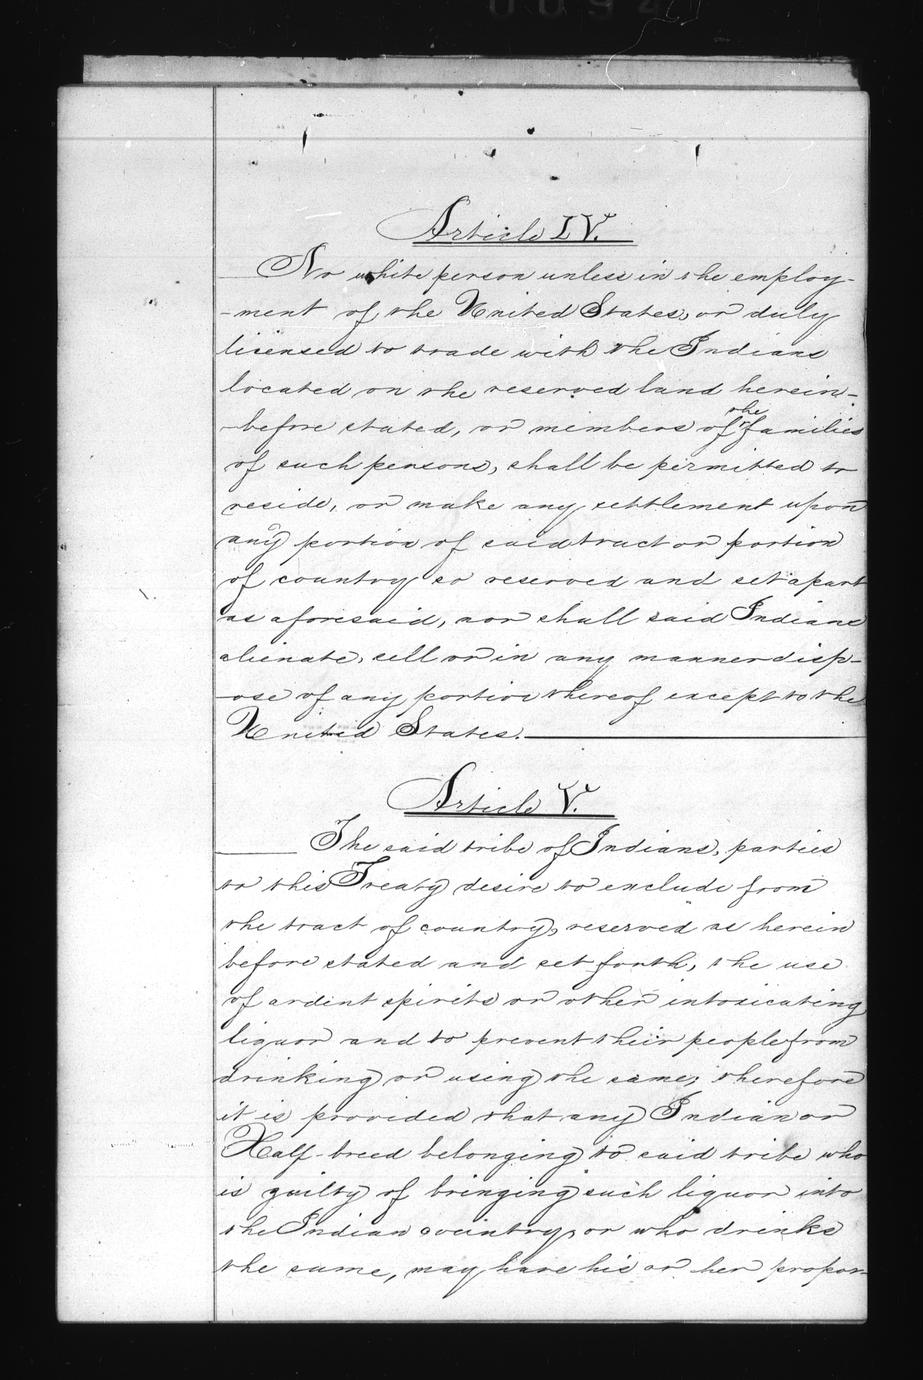 Article IV.
No white person unless in the employ-
-ment of the United States, or duly
licensed to trade with the Indians
located on the reserved land herein-
-before stated, or members of the families
of such persons, shall be permitted to
reside, or make any settlement upon
any portion of said tract or portion
of country so reserved and set apart
as aforesaid, nor shall said Indians
alienate, sell or in any manner disp-
-ose of any portion thereof except to the
United States.
Article V.
The said tribe of Indians, parties
to this Treaty desire to exclude from
the tract of country, reserved as herein
before stated and set forth, the use
of ardent spirits or other intoxicating
liquor and to prevent their people from
drinking or using the same, therefore
it is provided that any Indian or
Half-breed belonging to said tribe who
is guilty of bringing such liquor into
the Indian country, or who drinks
the same, may have his or her propor-